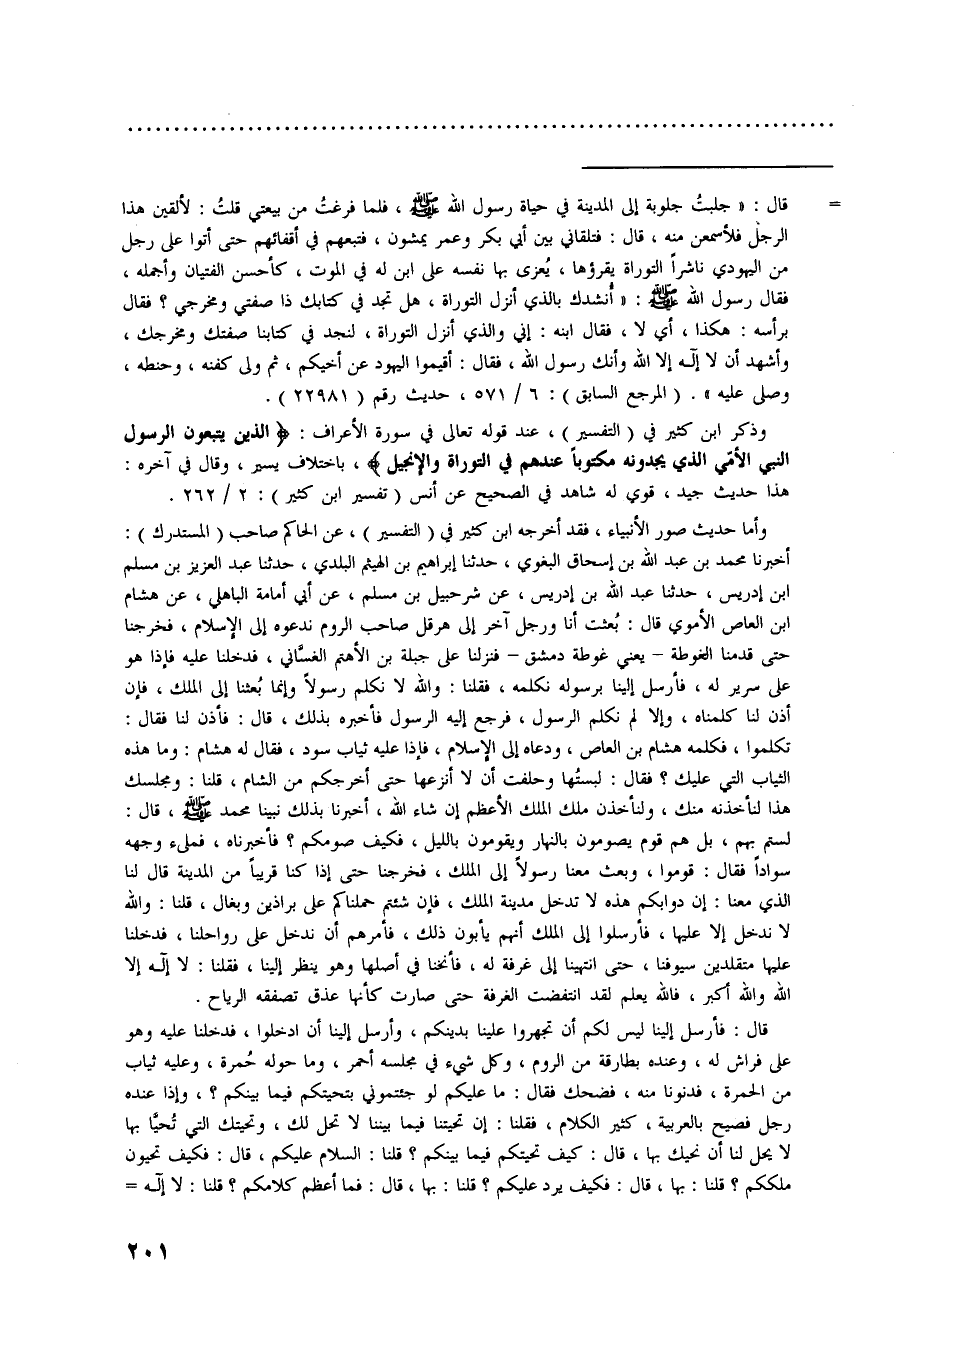 = قال : « جلبتُ جلوبة إلى المدينة في حياة رسول الله ﷺ ، فلما فرغتُ من بيعتي قلتُ : لألقين هذا
الرجلَ فلأسمعن منه ، قال : فتلقاني بين أبي بكر وعمر يمشون ، فتبعهم في أقفائهم حتى أتوا على رجل
من اليهودي ناشراً التوراة يقرؤها ، يُعزى بها نفسه على ابن له في الموت ، كأحسن الفتيان وأجمله ،
فقال رسول الله ﷺ : « أُنشدك بالذي أنزل التوراة ، هل تجد في كتابك ذا صفتي ومخرجي ؟ فقال
برأسه : هكذا ، أي لا ، فقال ابنه : إني والذي أنزل التوراة ، لنجد في كتابنا صفتك ومخرجك ،
وأشهد أن لا إلٰه إلا الله وأنك رسول الله ، فقال : أقيموا اليهود عن أخيكم ، ثم ولى كفنه ، وحنطه ،
وصلى عليه » . ( المرجع السابق ) : ٦ / ٥٧١ ، حديث رقم ( ٢٢٩٨١ ) .
وذكر ابن كثير في ( التفسير ) ، عند قوله تعالى في سورة الأعراف : ﴿ الذين يتبعون الرسول
النبي الأمّي الذي يجدونه مكتوباً عندهم في التوراة والإنجيل ﴾ ، باختلاف يسير ، وقال في آخره :
هذا حديث جيد ، قوي له شاهد في الصحيح عن أنس ( تفسير ابن كثير ) : ٢ / ٢٦٢ .
وأما حديث صور الأنبياء ، فقد أخرجه ابن كثير في ( التفسير ) ، عن الحاكم صاحب ( المستدرك ) :
أخبرنا محمد بن عبد الله بن إسحاق البغوي ، حدثنا إبراهيم بن الهيثم البلدي ، حدثنا عبد العزيز بن مسلم
ابن إدريس ، حدثنا عبد الله بن إدريس ، عن شرحبيل بن مسلم ، عن أبي أمامة الباهلي ، عن هشام
ابن العاص الأموي قال : بُعثت أنا ورجل آخر إلى هرقل صاحب الروم ندعوه إلى الإسلام ، فخرجنا
حتى قدمنا الغوطة – يعني غوطة دمشق – فنزلنا على جبلة بن الأهتم الغسَّاني ، فدخلنا عليه فإذا هو
على سرير له ، فأرسل إلينا برسوله نكلمه ، فقلنا : والله لا نكلم رسولاً وإنما بُعثنا إلى الملك ، فإن
أذن لنا كلمناه ، وإلا لم نكلم الرسول ، فرجع إليه الرسول فأخبره بذلك ، قال : فأذن لنا فقال :
تكلموا ، فكلمه هشام بن العاص ، ودعاه إلى الإسلام ، فإذا عليه ثياب سود ، فقال له هشام : وما هذه
الثياب التي عليك ؟ فقال : لبستُها وحلفت أن لا أنزعها حتى أخرجكم من الشام ، قلنا : ومجلسك
هذا لنأخذنه منك ، ولنأخذن ملك الملك الأعظم إن شاء الله ، أخبرنا بذلك نبينا محمد ﷺ ، قال :
لستم بهم ، بل هم قوم يصومون بالنهار ويقومون بالليل ، فكيف صومكم ؟ فأخبرناه ، فملىء وجهه
سواداً فقال : قوموا ، وبعث معنا رسولاً إلى الملك ، فخرجنا حتى إذا كنا قريباً من المدينة قال لنا
الذي معنا : إن دوابكم هذه لا تدخل مدينة الملك ، فإن شئتم حملناكم على براذين وبغال ، قلنا : والله
لا ندخل إلا عليها ، فأرسلوا إلى الملك أنهم يأبون ذلك ، فأمرهم أن ندخل على رواحلنا ، فدخلنا
عليها متقلدين سيوفنا ، حتى انتهينا إلى غرفة له ، فأنخنا في أصلها وهو ينظر إلينا ، فقلنا : لا إلٰه إلا
الله والله أكبر ، فالله يعلم لقد انتفضت الغرفة حتى صارت كأنها عذق تصفقه الرياح .
قال : فأرسل إلينا ليس لكم أن تجهروا علينا بدينكم ، وأرسل إلينا أن ادخلوا ، فدخلنا عليه وهو
على فراش له ، وعنده بطارقة من الروم ، وكل شيء في مجلسه أحمر ، وما حوله حُمرة ، وعليه ثياب
من الحمرة ، فدنونا منه ، فضحك فقال : ما عليكم لو جئتموني بتحيتكم فيما بينكم ؟ ، وإذا عنده
رجل فصيح بالعربية ، كثير الكلام ، فقلنا : إن تحيتنا فيما بيننا لا تحل لك ، وتحيتك التي تُحيَّا بها
لا يحل لنا أن نحيك بها ، قال : كيف تحيتكم فيما بينكم ؟ قلنا : السلام عليكم ، قال : فكيف تحيون
ملككم ؟ قلنا : بها ، قال : فكيف يرد عليكم ؟ قلنا : بها ، قال : فما أعظم كلامكم ؟ قلنا : لا إلٰه =
٢٠١